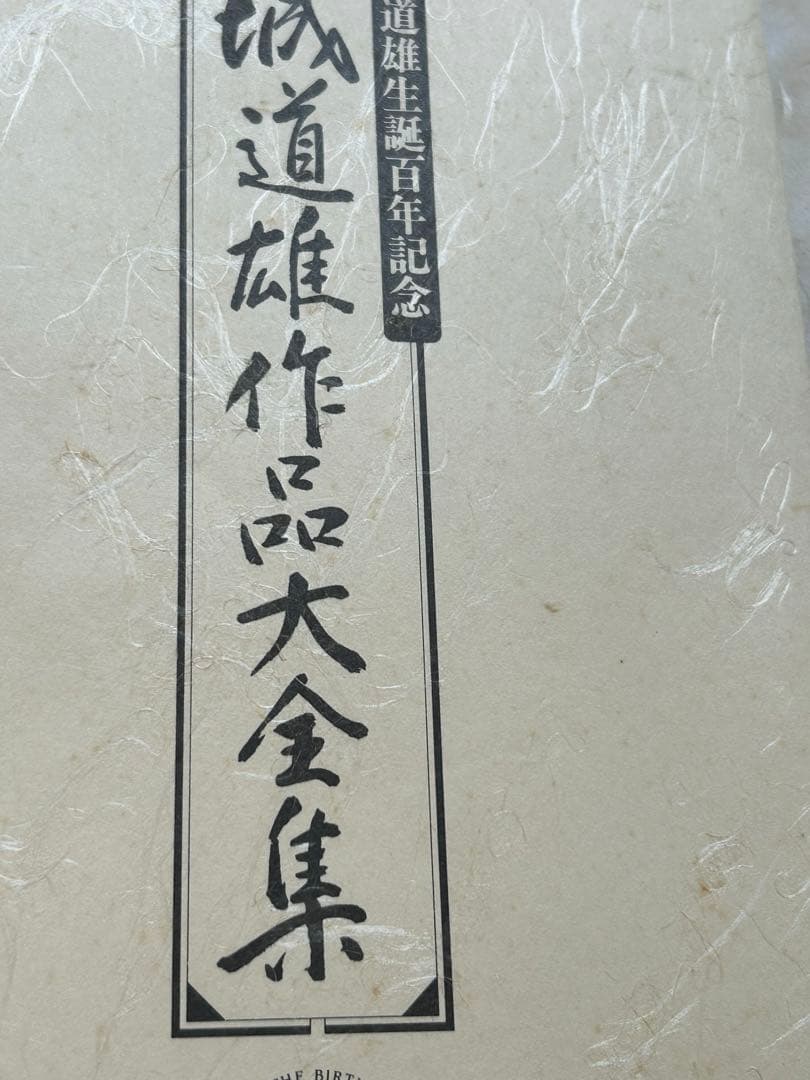 道雄生誕百年記念
城道雄作品大全集
THE BIRT